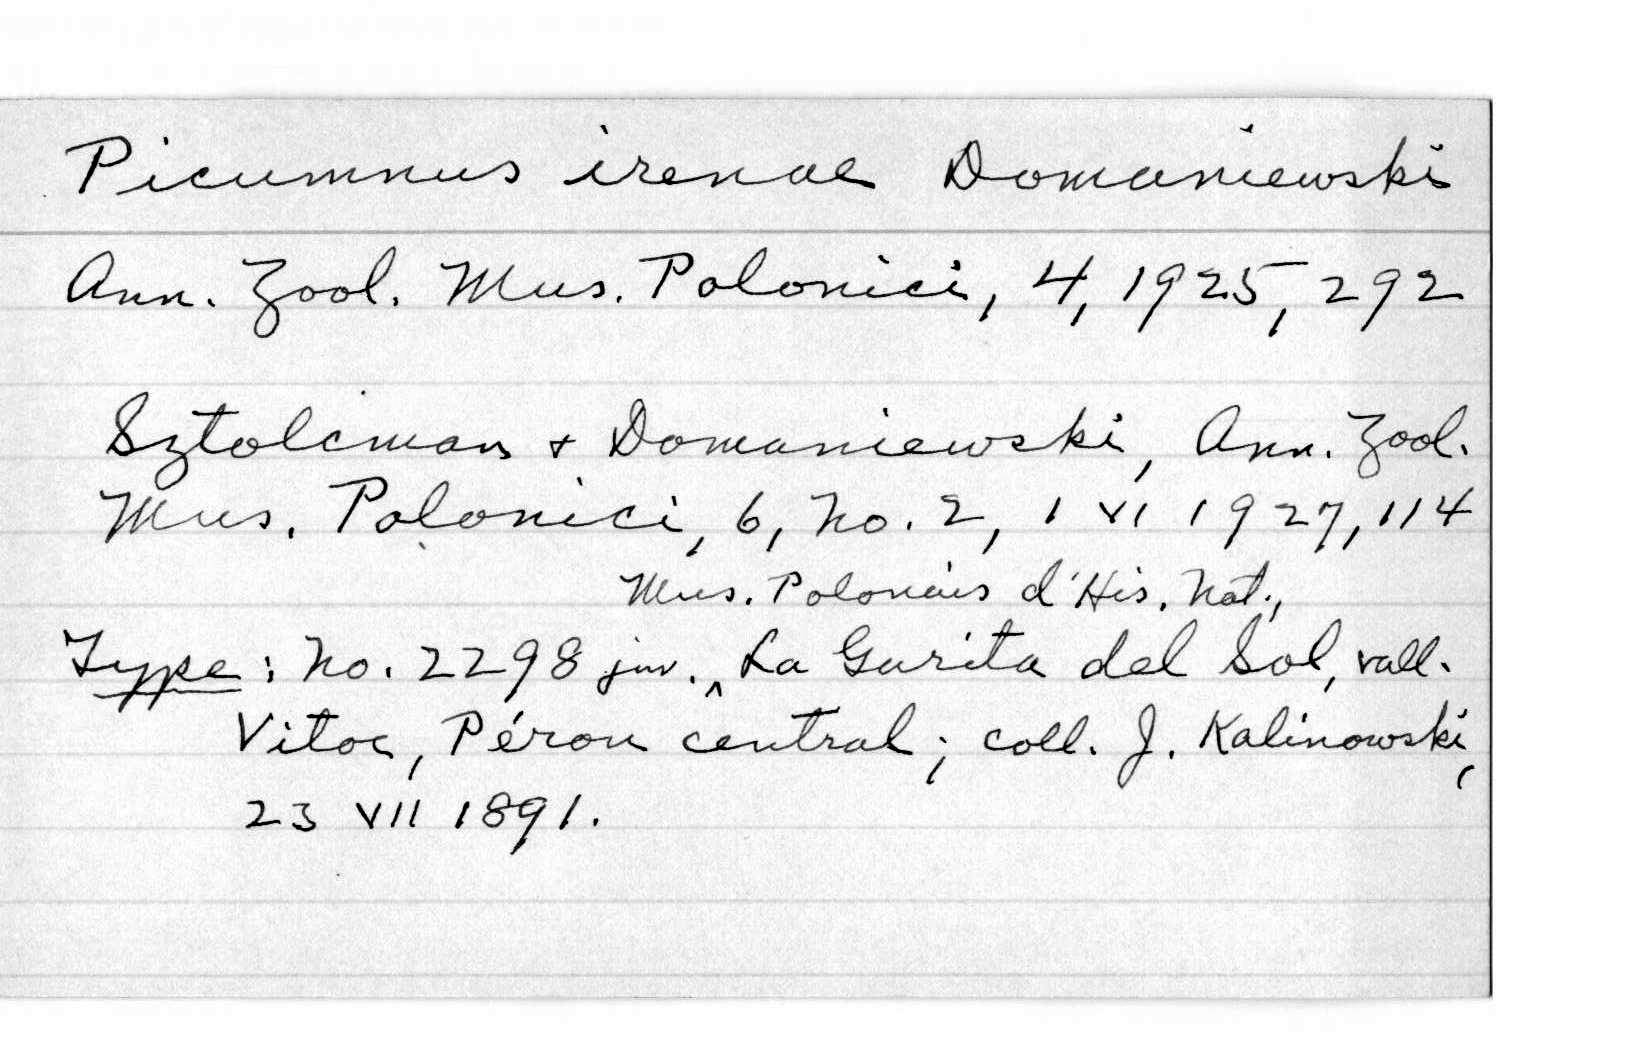 Picumnus irenae Domaniewski
Ann. Zool. Mus. Polonici, 4, 1925, 292
Sztolcman + Domaniewski, Ann. Zool.
Mus. Polonici, 6, No. 2, 1 VI 1927, 114
Mus. Polonais d'His. Nat.,
Type: No. 2298 juv. ‸ La Garita del Sol, vall.
Vitoc, Pérou central; coll. J. Kalinowski,
23 VII 1891.